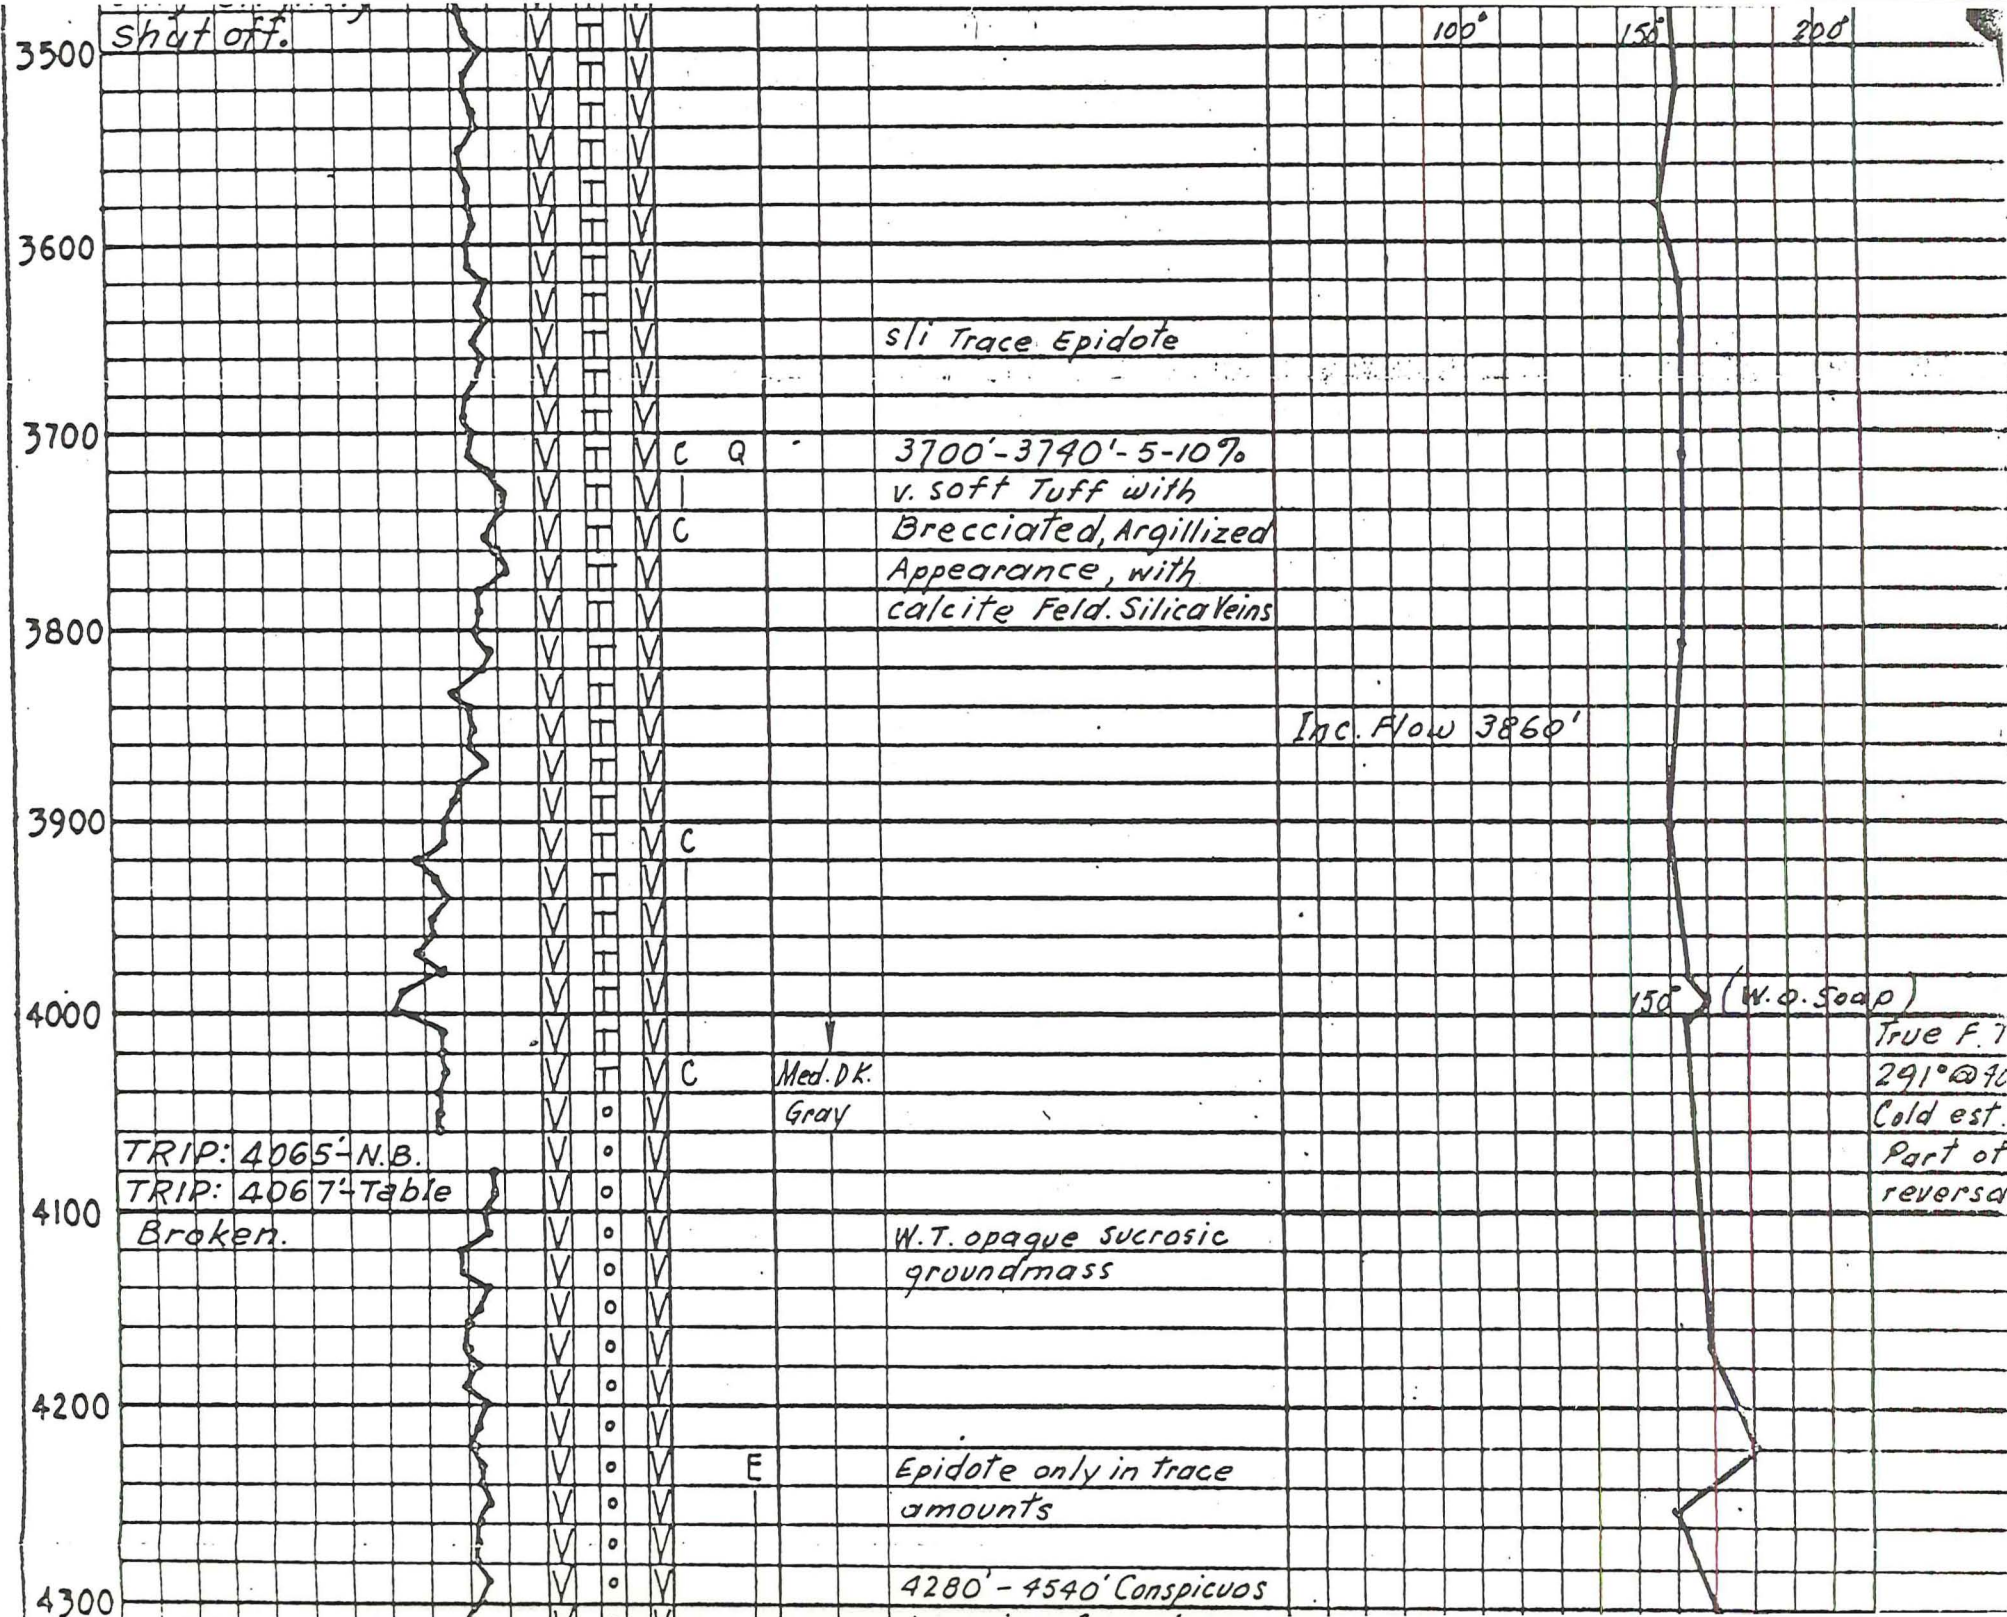 shut off.
100° 150° 200°
3500
3600
sli Trace Epidote
3700
C Q 3700'-3740'-5-10%
v. soft Tuff with
C Brecciated, Argillized
Appearance, with
calcite Feld. Silica Veins
3800
Inc. Flow 3860'
3900
C
150° (W.O. Soap)
4000
True F.T
C Med. DK. 291°@40
Gray Cold est.
TRIP: 4065'-N.B. Part of
TRIP: 4067'-Table reversa
4100
Broken. W.T. opaque sucrosic
groundmass
4200
E Epidote only in trace
amounts
4280'-4540' Conspicuos
4300